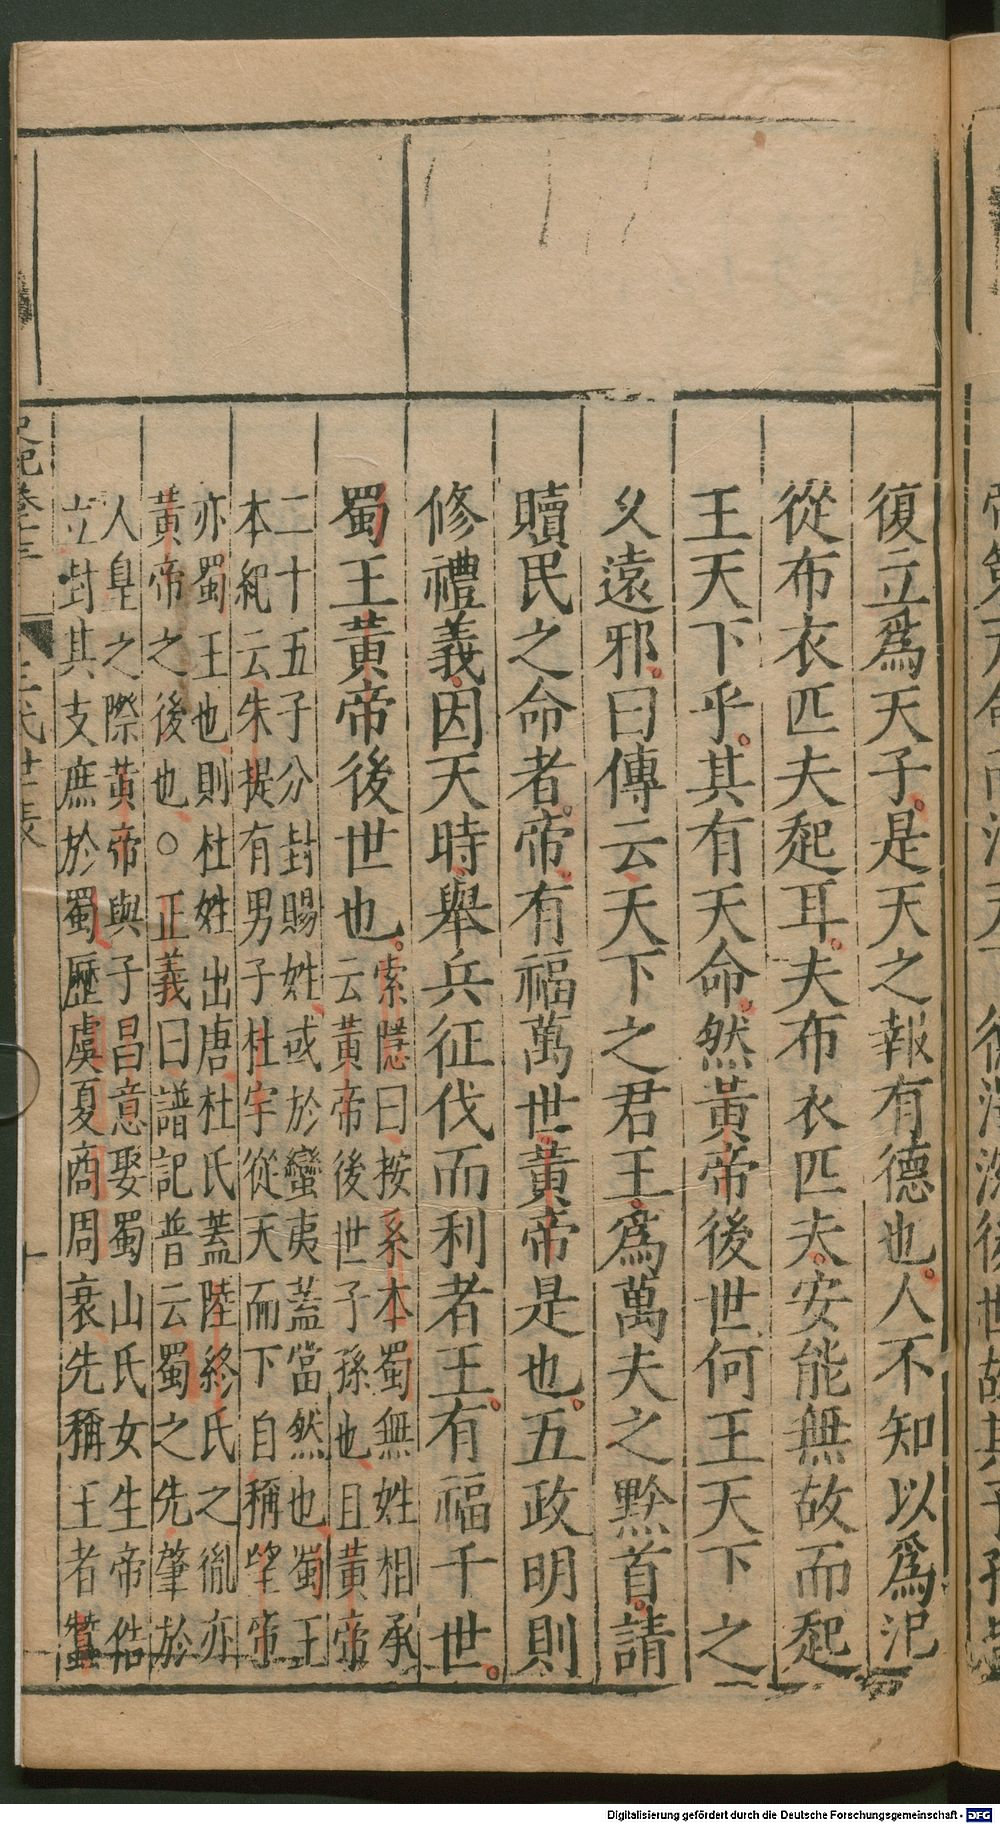 復立爲天子是天之報有德也人不知以爲氾
從布衣匹夫起耳夫布衣匹夫安能無故而起
王天下乎其有天命然黃帝後世何王天下之
乆遠邪曰傳云天下之君王爲萬夫之黔首請
贖民之命者帝有福萬世黃帝是也五政明則
修禮義因天時舉兵征伐而利者王有福千世
蜀王黃帝後世也
索隱曰按系本蜀無姓相承
云黃帝後世子孫也且黃帝
二十五子分封賜姓或於蠻夷蓋當然也蜀王
本紀云朱提有男子杜宇從天而下自稱望帝
亦蜀王也則杜姓出唐杜氏蓋陸終氏之胤亦
黃帝之後也○正義曰譜記普云蜀之先肇於
人皇之際黃帝與子昌意娶蜀山氏女生帝俈
立封其支庶於蜀歷虞夏商周衰先稱王者蠶
三代世表
十
Digitalisierung gefördert durch die Deutsche Forschungsgemeinschaft - DFG